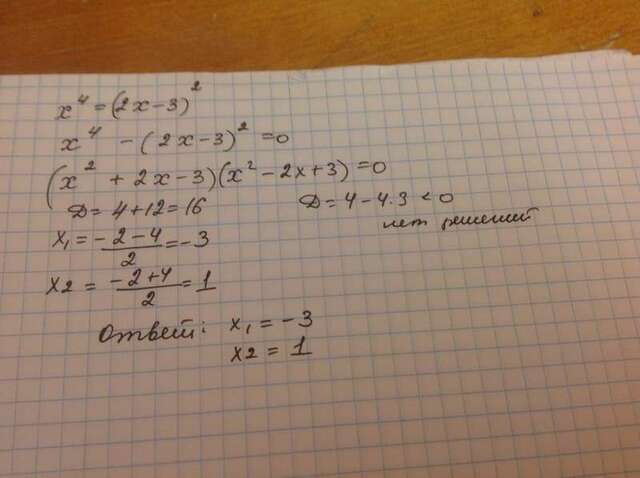 x⁴ = (2x-3)²
x⁴ - (2x-3)² = 0
(x² + 2x - 3)(x² - 2x + 3) = 0
D = 4 + 12 = 16
D = 4 - 4·3 < 0
нет решений
x₁ = (-2-4)/2 = -3
x2 = (-2+4)/2 = 1
Ответ: x₁ = -3
x2 = 1